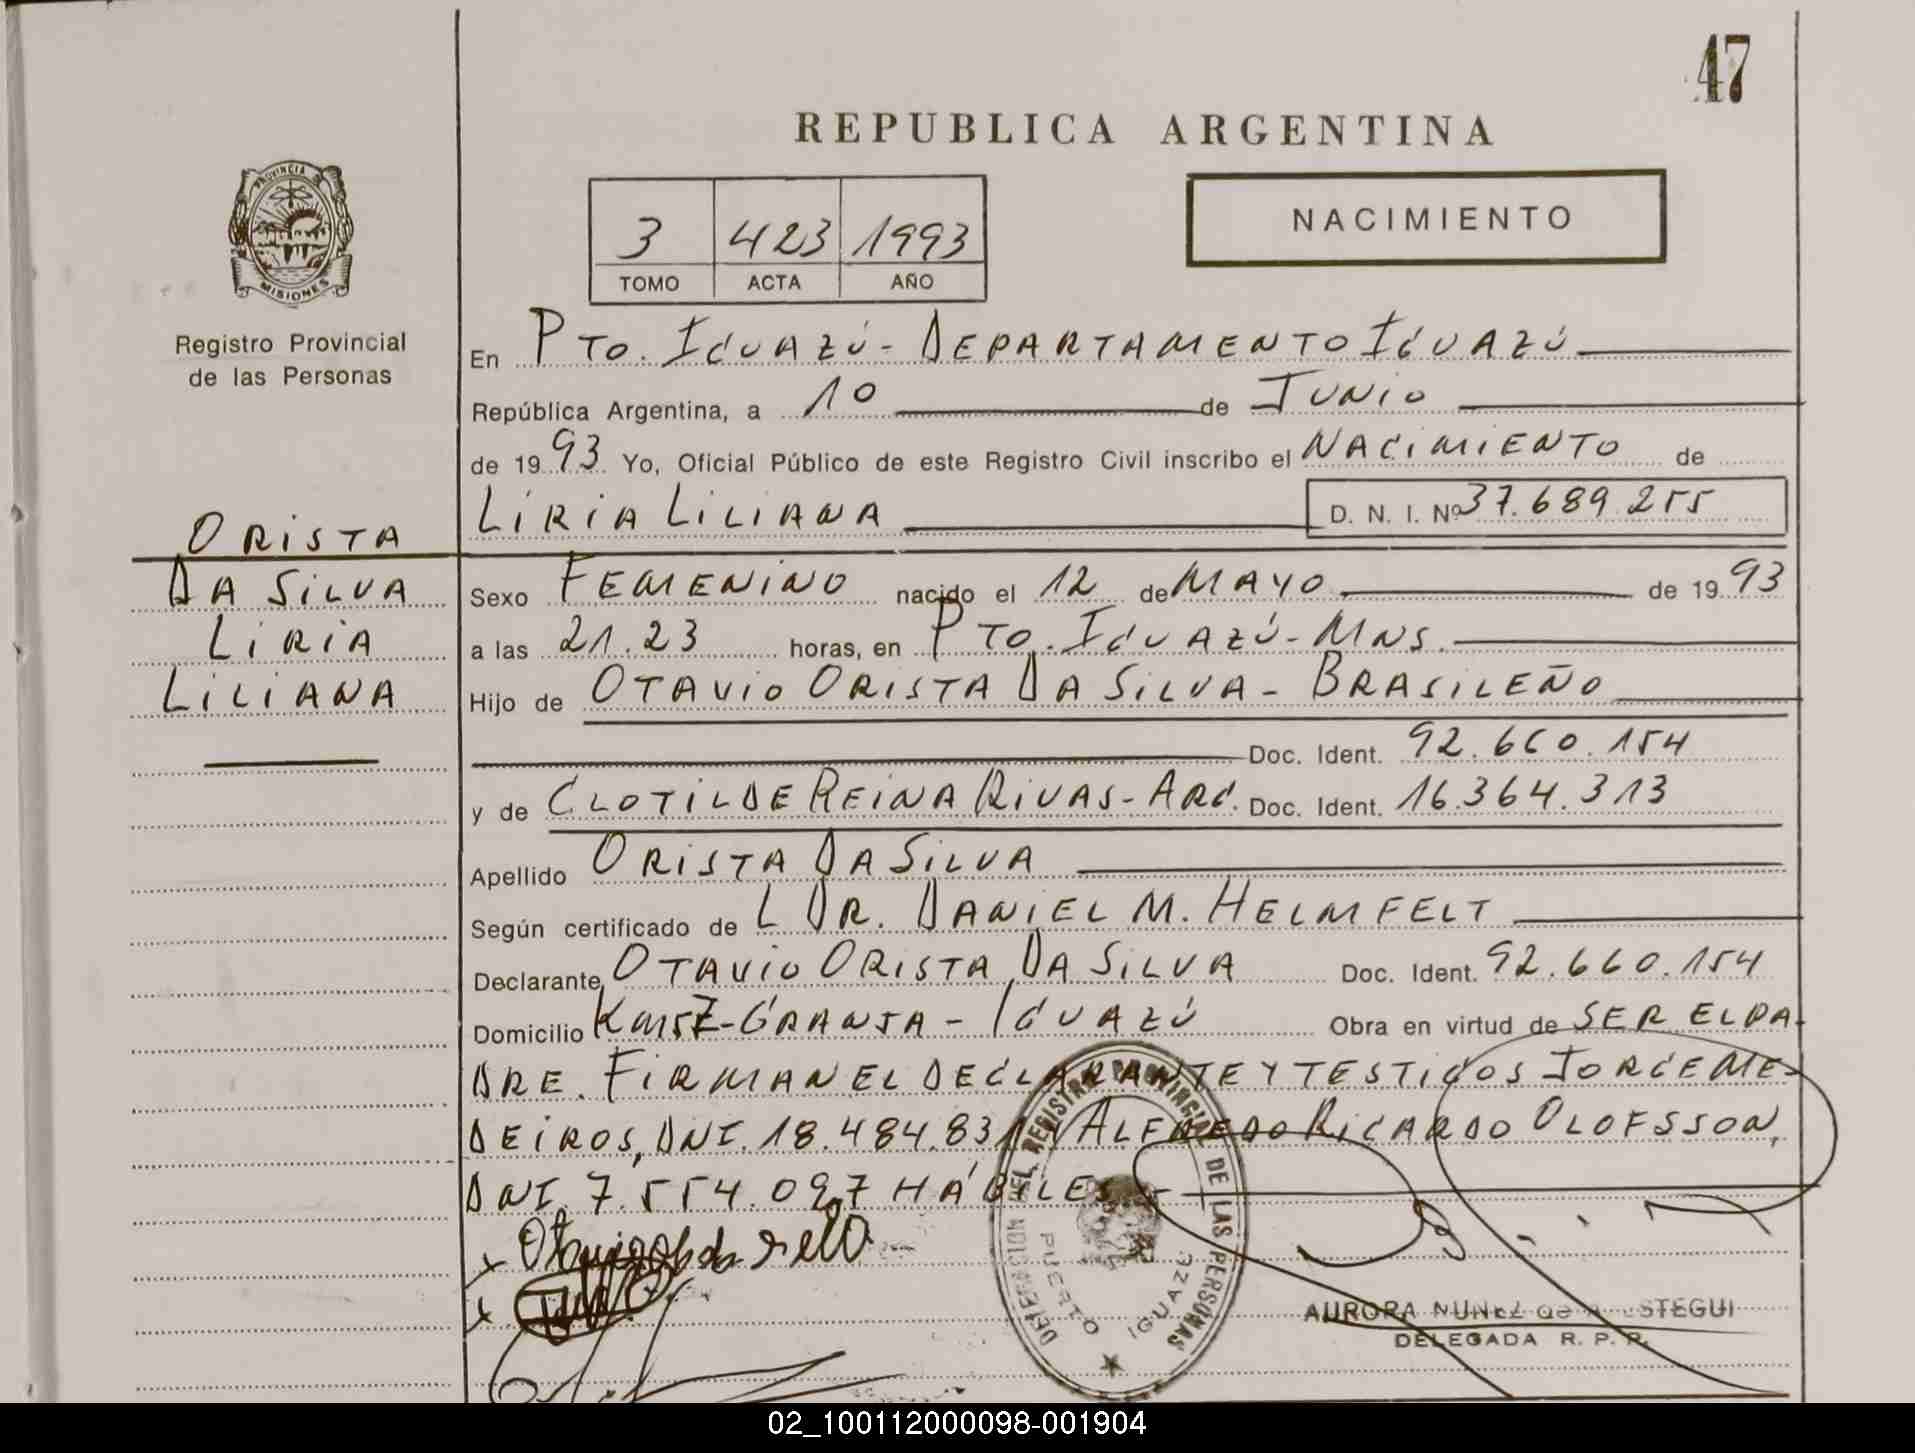 47
REPUBLICA ARGENTINA
PROVINCIA DE
MISIONES
Registro Provincial
de las Personas
3 423 1993
TOMO ACTA AÑO
NACIMIENTO
En PTO. IGUAZÚ - DEPARTAMENTO IGUAZÚ
República Argentina, a 10 de JUNIO
de 1993 Yo, Oficial Público de este Registro Civil inscribo el NACIMIENTO de
LIRIA LILIANA D. N. I. Nº 37.689.255
ORISTA
DA SILVA
LIRIA
LILIANA
Sexo FEMENINO nacido el 12 de MAYO de 1993
a las 21.23 horas, en PTO. IGUAZÚ - MNS.
Hijo de OTAVIO ORISTA DA SILVA - BRASILEÑO
Doc. Ident. 92.660.154
y de CLOTILDE REINA RIVAS - ARG. Doc. Ident. 16.364.313
Apellido ORISTA DA SILVA
Según certificado de L DR. DANIEL M. HELMFELT
Declarante OTAVIO ORISTA DA SILVA Doc. Ident. 92.660.154
Domicilio KM 5 - GRANJA - IGUAZÚ Obra en virtud de SER EL PA-
DRE. FIRMAN EL DECLARANTE Y TESTIGOS JORGE ME-
DEIROS, DNI. 18.484.831 Y ALFREDO RICARDO OLOFSSON,
DNI. 7.554.097 HÁBILES
DELEGACION DEL REGISTRO PROVINCIAL DE LAS PERSONAS
PUERTO IGUAZU
AURORA NUÑEZ de
DELEGADA R. P. P.
02_100112000098-001904